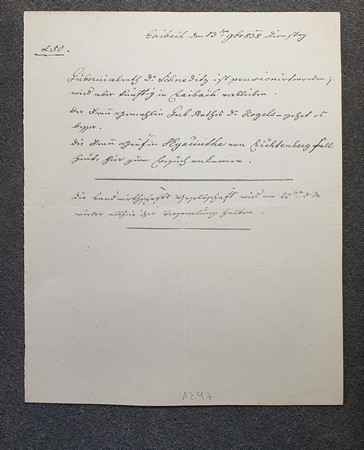 Laibach den 13ten 9br 1838 Dienstag
250.
Gubernialrath v. Schneditz ist pensionirt worden;
wird aber künftig in Laibach verbleiben.
Der Frau Gemahlin Gub Raths v. Vogels geht es
besser.
Die Frau Gräfin Hyacinthe von Lichtenberg soll
heut, hier zum Besuch ankommen.
Die Landwirthschafts Gesellschaft wird am d. M.
wieder allhier ihre Versammlung halten.
1297